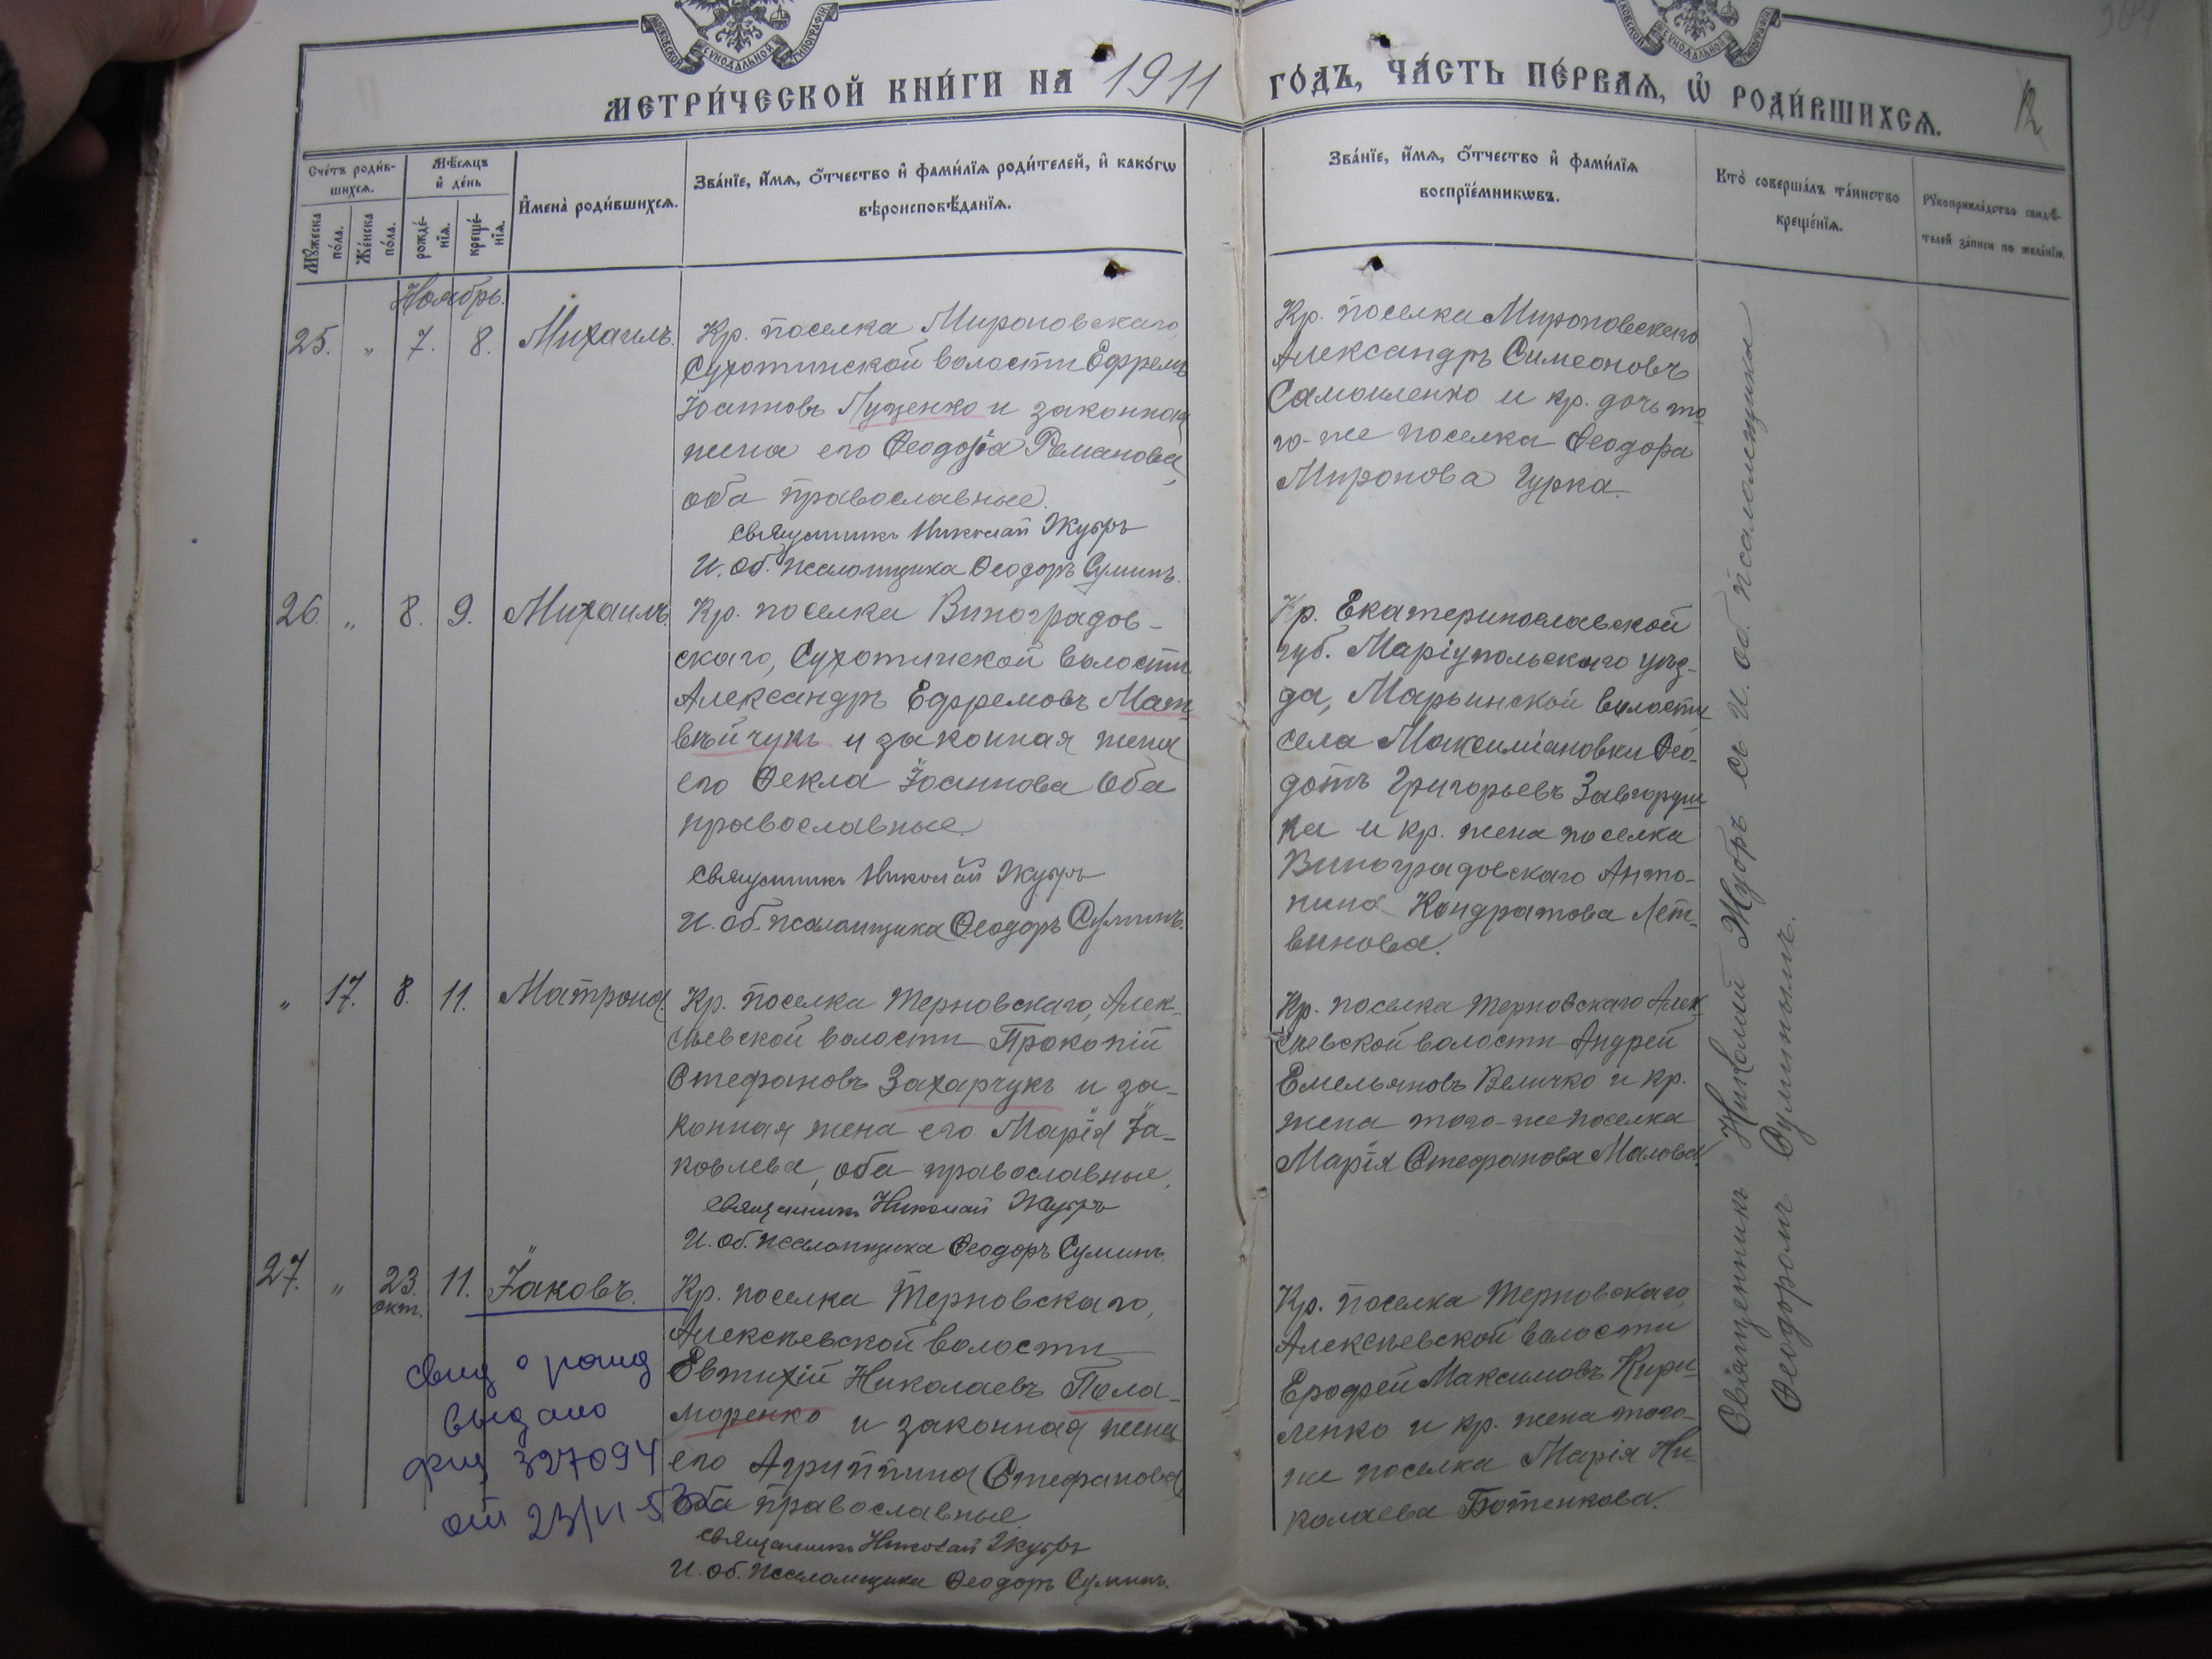 МОСКОВСКОЙ СѴНОДАЛЬНОЙ ТИПОГРАФІИ
МЕТРИ́ЧЕСКОЙ КНИ́ГИ НА 1911 ГО́ДЪ, ЧА́СТЬ ПЕ́РВАЯ, Ѡ҆ РОДИ́ВШИХСЯ.
12
Сче́тъ роди́в-
шихся.
Му́жеска по́ла.
Же́нска по́ла.
Мѣ́сяцъ
и҆ де́нь
рожде́-
нїя.
креще́-
нїя.
И҆мена̀ роди́вшихся.
Зва́нїе, и҆́мя, ѻ҆́тчество и҆ фами́лїя роди́телей, и҆ како́гѡ
вѣроисповѣ́данїя.
Зва́нїе, и҆́мя, ѻ҆́тчество и҆ фами́лїя
воспрїе́мникѡвъ.
Кто̀ соверша́лъ та́инство
креще́нїя.
Рукоприкла́дство свидѣ́-
телей за́писи по жела́нїю.
Ноябрь.
25. „ 7. 8. Михаилъ.
Кр. поселка Мироновскаго
Сухотинской волости Ефремъ
Іоанновъ Луценко и законная
жена его Ѳеодосія Романова,
оба православные.
Священникъ Николай Жубръ
И. об. псаломщика Ѳеодоръ Суминъ.
Кр. поселка Мироновскаго
Александръ Симеоновъ
Самойленко и кр. дочь то
го-же поселка Ѳеодора
Миронова Гурка.
26. „ 8. 9. Михаилъ.
Кр. поселка Виноградов-
скаго, Сухотинской волости
Александръ Ефремовъ Мат-
вѣйчукъ и законная жена
его Ѳекла Іоаннова оба
православные.
Священникъ Николай Жубръ
И. об. псаломщика Ѳеодоръ Суминъ.
Кр. Екатеринославской
губ. Маріупольскаго уѣз-
да, Марьинской волости
села Максиміановки Ѳео-
дотъ Григорьевъ
и кр. жена поселка
Виноградовскаго Анто-
нина Кондратова Лет-
винова.
„ 17. 8. 11. Матрона.
Кр. поселка Терновскаго, Алек-
сѣевской волости Прокопій
Стефановъ Захарчукъ и за-
конная жена его Марія Іа-
ковлева, оба православные.
Священникъ Николай Жубръ
И. об. псаломщика Ѳеодоръ Суминъ.
Кр. поселка Терновскаго Алек-
сѣевской волости Андрей
Емельяновъ Величко и кр.
жена того-же поселка
Марія Стефанова Малова.
27. „ 23. окт. 11. Іаковъ.
Кр. поселка Терновскаго,
Алексѣевской волости
Евтихій Николаевъ Пола-
моренко и законная жена
его Агриппина Стефанова
оба православные
Священникъ Николай Жубръ
И. об. псаломщика Ѳеодоръ Суминъ.
Кр. поселка Терновскаго,
Алексѣевской волости
Ерофей Максимовъ Кири-
ленко и кр. жена того-
же поселка Марія Ни-
колаева Ботенкова.
свид о рожд
выдано
327094
от 23/VI-53
Священникъ Николай Жубръ съ И. об. псаломщика
Ѳеодоромъ Суминымъ.